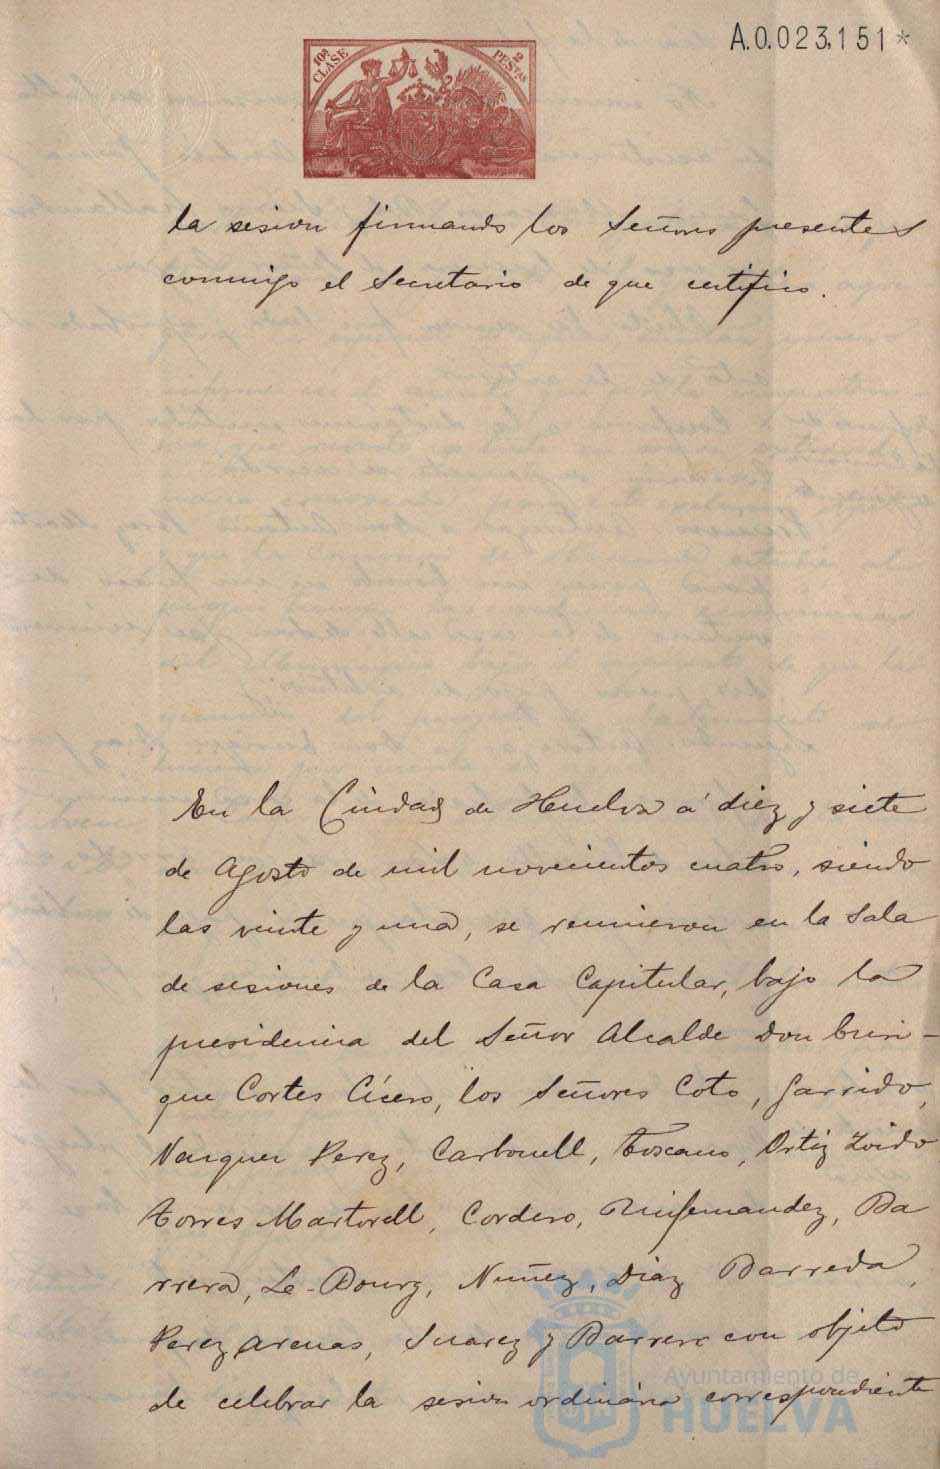 A.0.023,151*
10ª CLASE
2 PESTAS
la sesion firmando los Señores presentes
conmigo el Secretario de que certifico.
En la Ciudad de Huelva á diez y siete
de Agosto de mil novecientos cuatro, siendo
las veinte y una, se reunieron en la Sala
de sesiones de la Casa Capitular, bajo la
presidencia del Señor Alcalde Don Enri-
que Cortes Cícero, los Señores Coto, Garrido,
Vazquez Perez, Carbonell, Toscano, Ortiz Zoido
Torres Martorell, Cordero, Ruifernandez, Ba
rrera, Le-Bourg, Nuñez, Diaz Barreda,
Perez Arenas, Suarez y Barrera con objeto
de celebrar la sesion ordinaria correspondiente
Ayuntamiento de
HUELVA